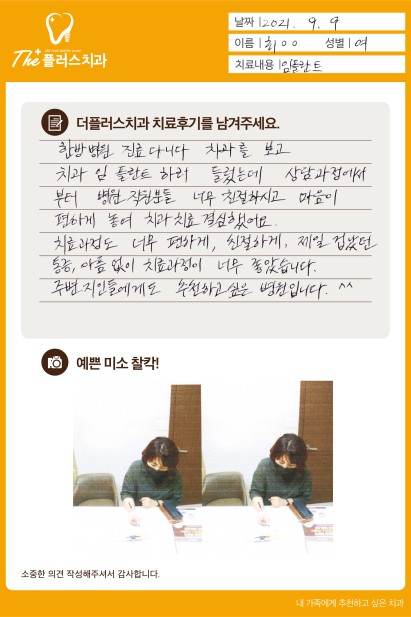 The 플러스치과
날짜 2021. 9. 9
이름 최○○ 성별 여
치료내용 임플란트
더플러스치과 치료후기를 남겨주세요.
한방병원 진료 다니다 치과를 보고
치과 임플란트 하러 들렀는데 상담과정에서
부터 병원 직원분들 너무 친절하시고 마음이
편하게 놓여 치과치료 결심했어요.
치료과정도 너무 편하게, 친절하게, 제일 겁났던
통증, 아픔 없이 치료과정이 너무 좋았습니다.
주변지인들에게도 추천하고싶은 병원입니다. ^^
예쁜 미소 찰칵!
소중한 의견 작성해주셔서 감사합니다.
내 가족에게 추천하고 싶은 치과